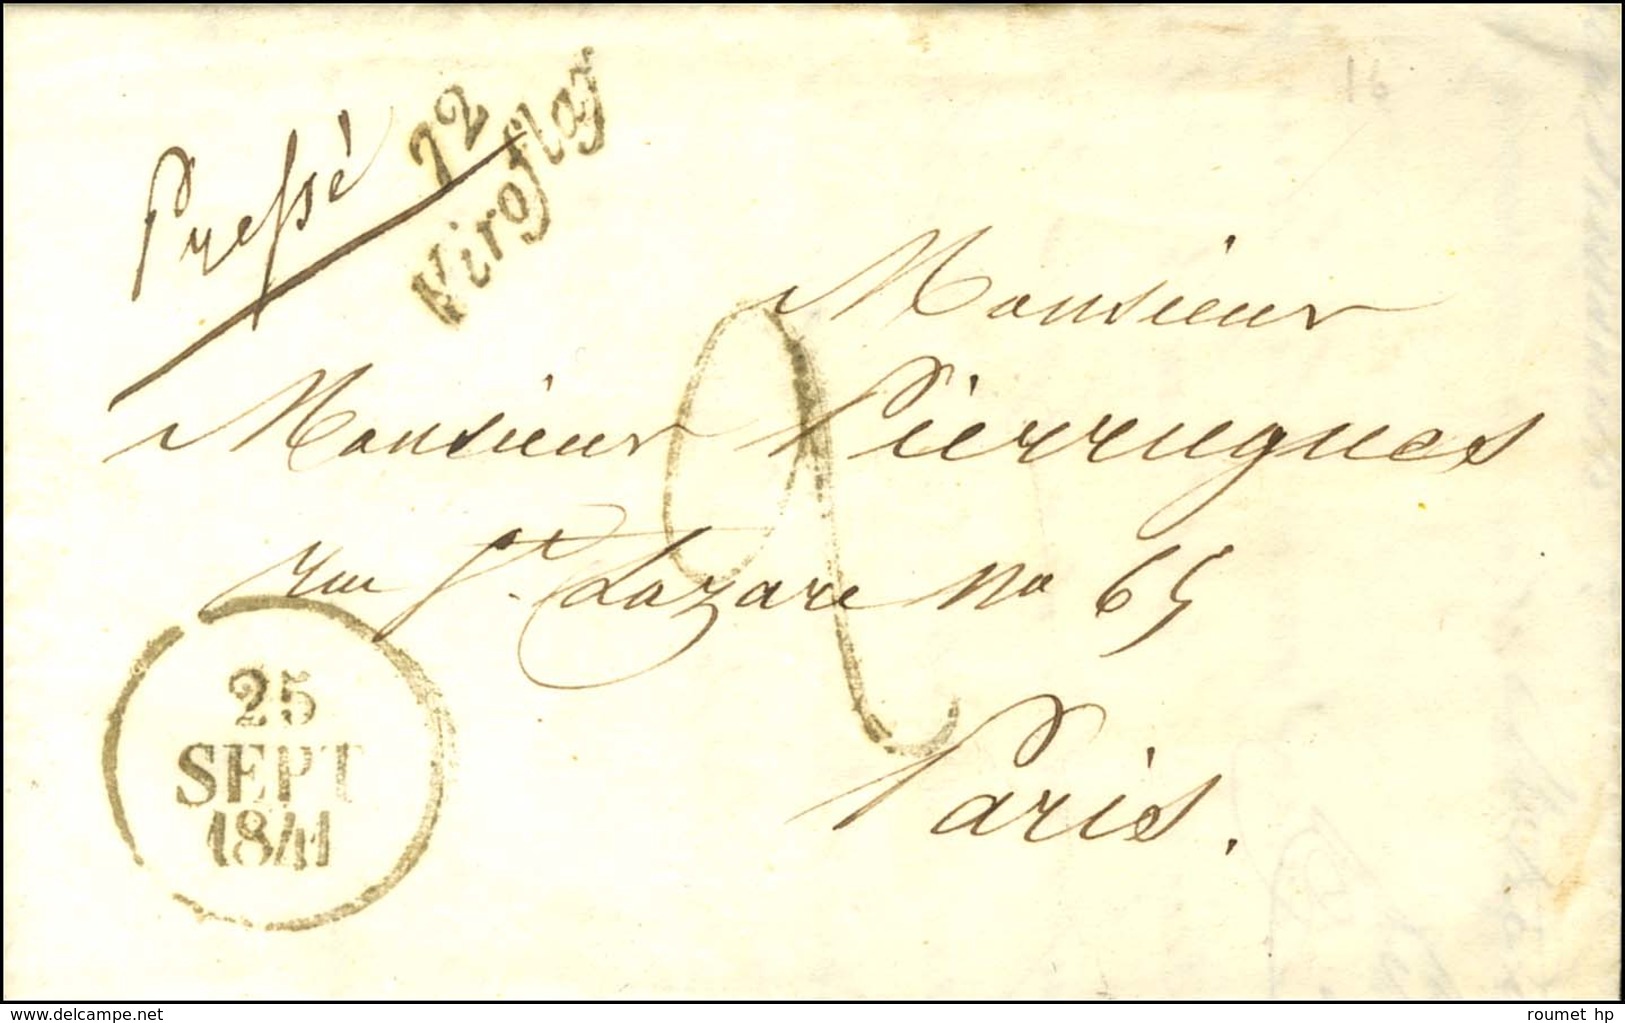 16
Pressé
72
Viroflay
Monsieur
Monsieur Pierrugues
rue St. Lazare No 65
Paris.
2
25
SEPT
1841
www.delcampe.net
roumet hp